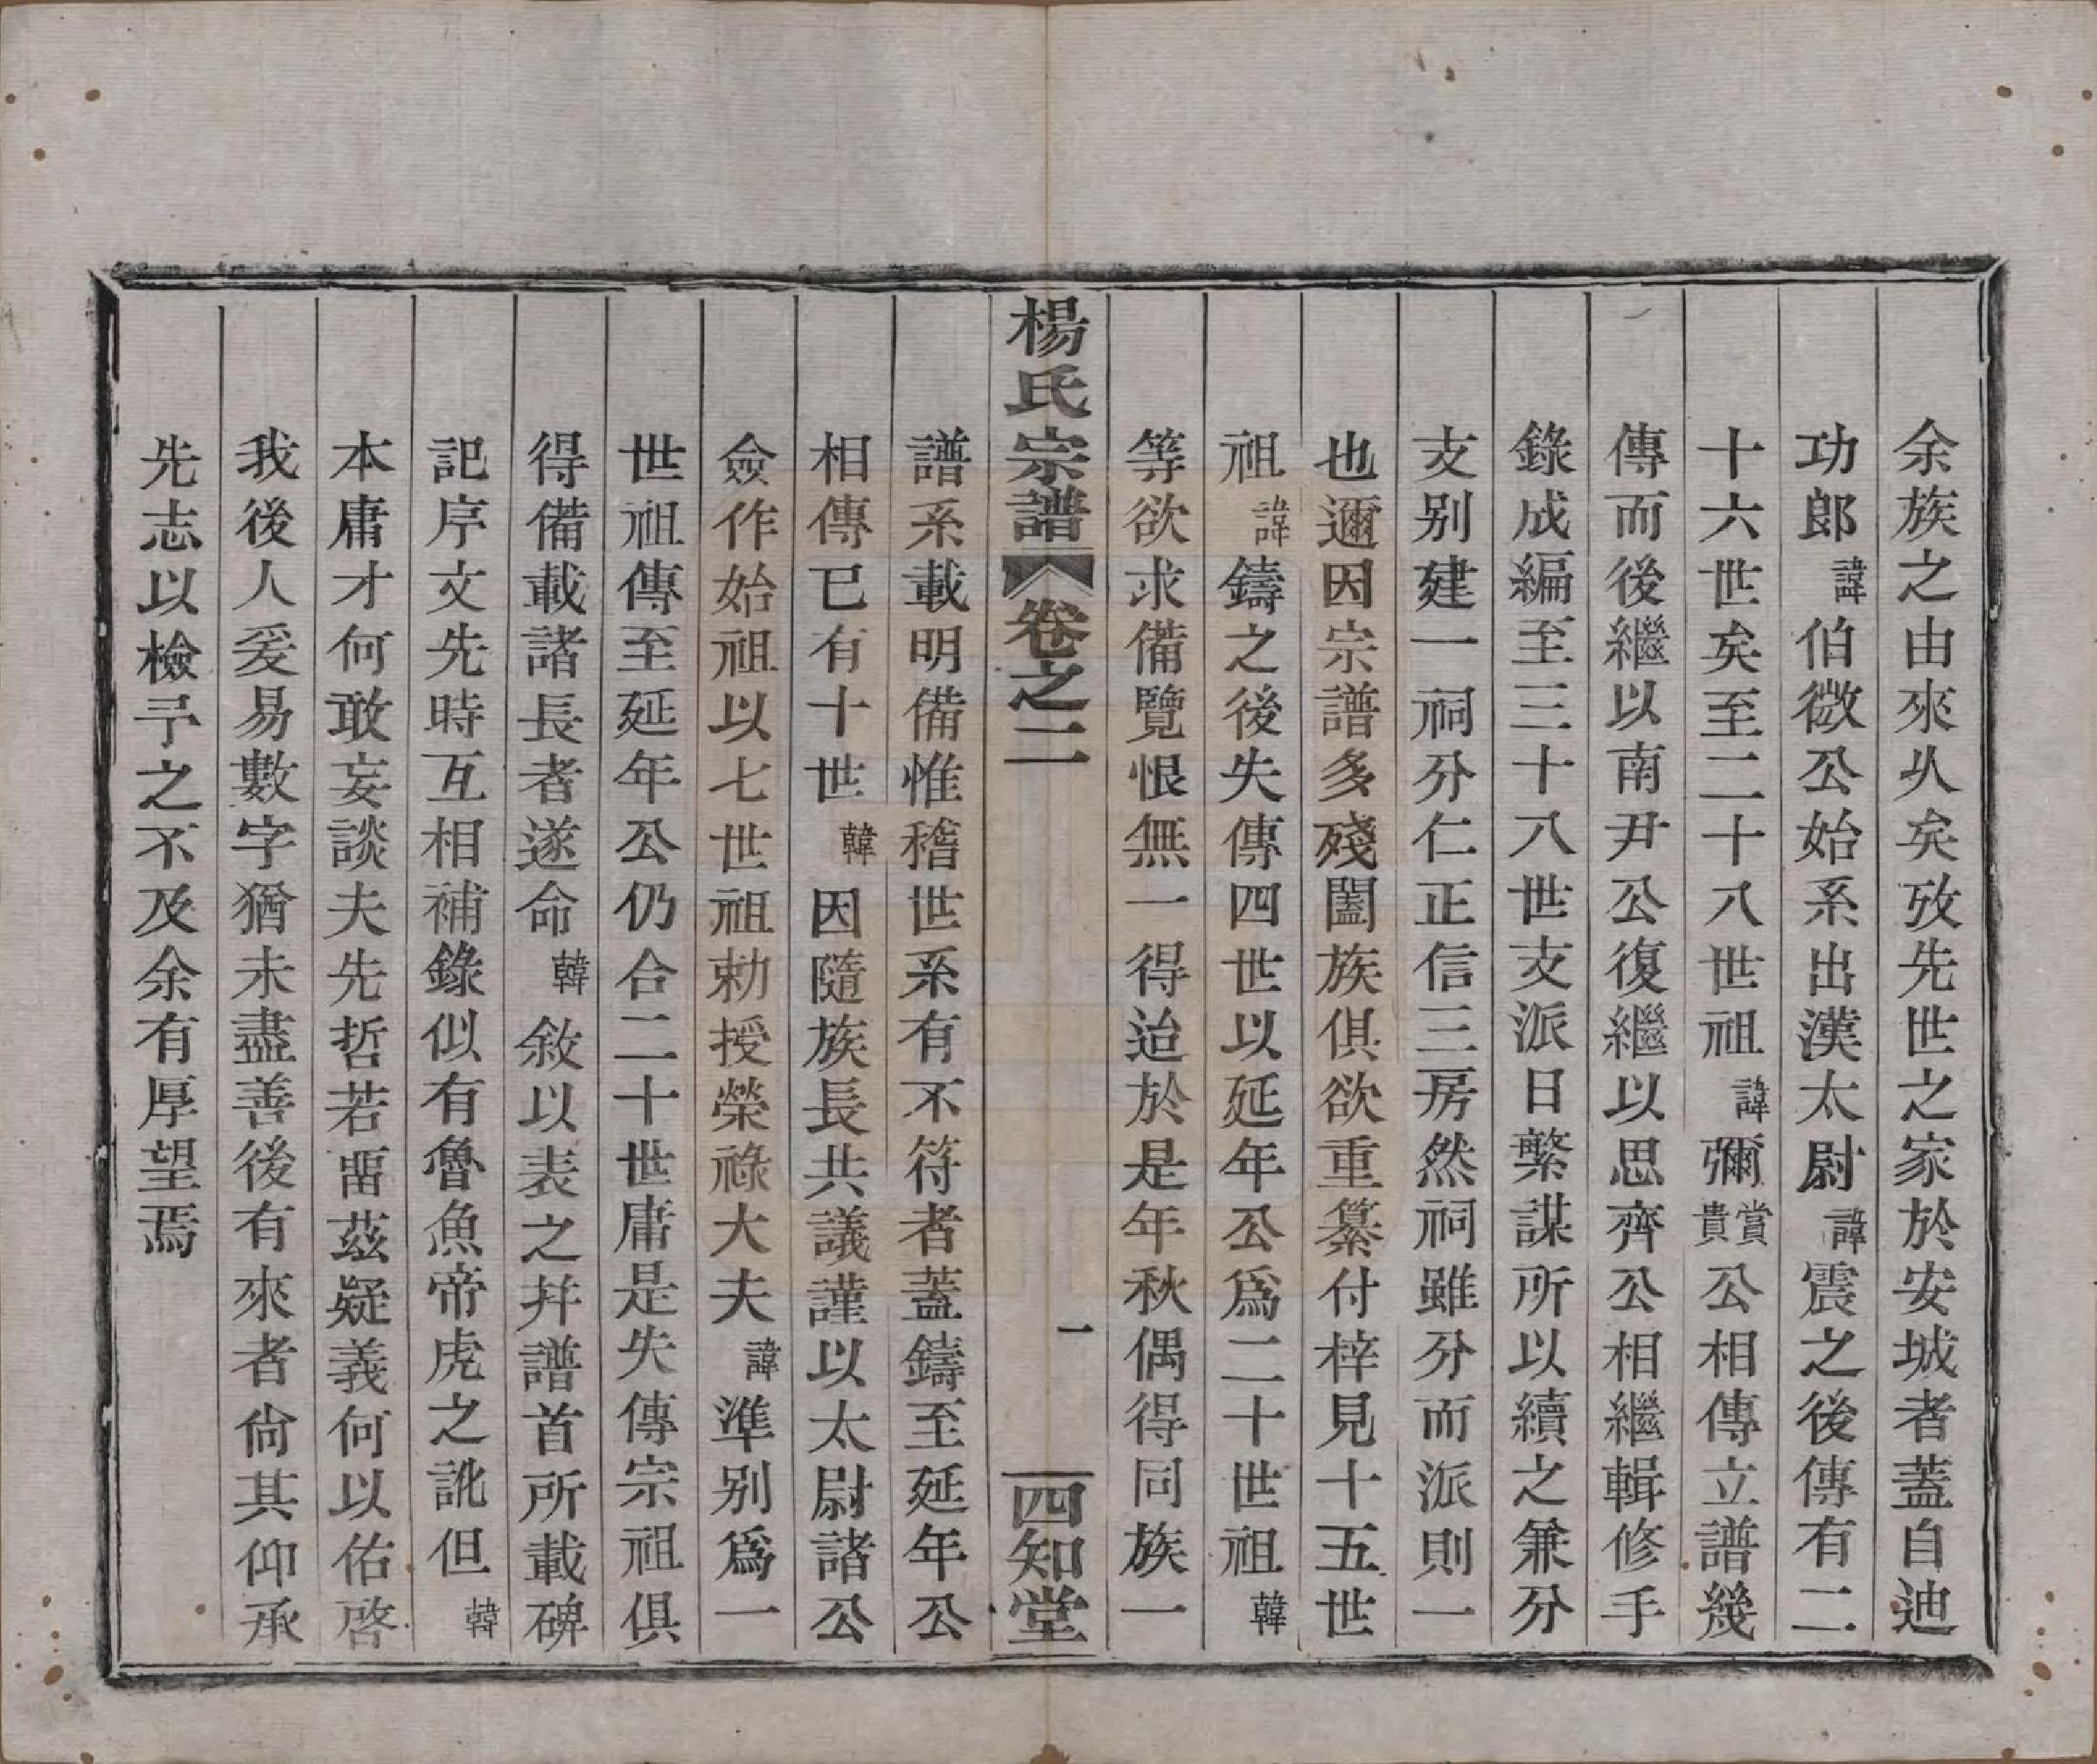 余族之由來乆矣攷先世之家於安城者蓋自迪
功郎諱伯微公始系出漢太尉諱震之後傳有二
十六世矣至二十八世祖諱彌賞貴公相傳立譜幾
傳而後繼以南尹公復繼以思齊公相繼輯修手
錄成編至三十八世支派日繁謀所以續之兼分
支别建一祠分仁正信三房然祠雖分而派則一
也邇因宗譜多殘闔族俱欲重纂付梓見十五世
祖諱鑄之後失傳四世以延年公爲二十世祖韓
等欲求備覽恨無一得迨於是年秋偶得同族一
楊氏宗譜 卷之二 一 四知堂
譜系載明備惟稽世系有不符者蓋鑄至延年公
相傳已有十世韓因隨族長共議謹以太尉諸公
僉作始祖以七世祖勅授榮祿大夫諱準别爲一
世祖傳至延年公仍合二十世庸是失傳宗祖俱
得備載諸長者遂命韓敘以表之幷譜首所載碑
記序文先時互相補錄似有魯魚帝虎之訛但韓
本庸才何敢妄談夫先哲若畱茲疑義何以佑啓
我後人爰易數字猶未盡善後有來者尙其仰承
先志以檢予之不及余有厚望焉